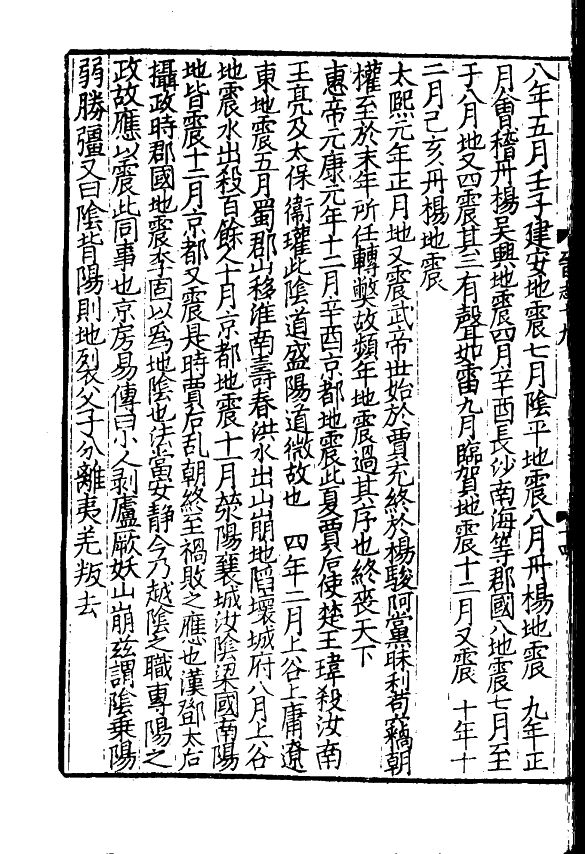 八年五月壬子建安地震七月陰平地震八月丹楊地震　九年正
月會稽丹楊吳興地震四月辛酉長沙南海等郡國八地震七月至
于八月地又四震其三有聲如雷九月臨賀地震十二月又震　十年十
二月己亥丹楊地震
太熙元年正月地又震武帝世始於賈充終於楊駿阿黨昧利苟竊朝
權至於末年所任轉獘故頻年地震過其序也終喪天下
惠帝元康元年十二月辛酉京都地震此夏賈后使楚王瑋殺汝南
王亮及太保衞瓘此陰道盛陽道微故也　四年二月上谷上庸遼
東地震五月蜀郡山移淮南壽春洪水出山崩地陷壞城府八月上谷
地震水出殺百餘人十月京都地震十一月滎陽襄城汝陰梁國南陽
地皆震十二月京都又震是時賈后乱朝終至禍敗之應也漢鄧太后
攝政時郡國地震李固以爲地陰也法當安靜今乃越陰之職專陽之
政故應以震此同事也京房易傳曰小人剥廬厥妖山崩茲謂陰乗陽
弱勝彊又曰陰背陽則地裂父子分離夷羌叛去